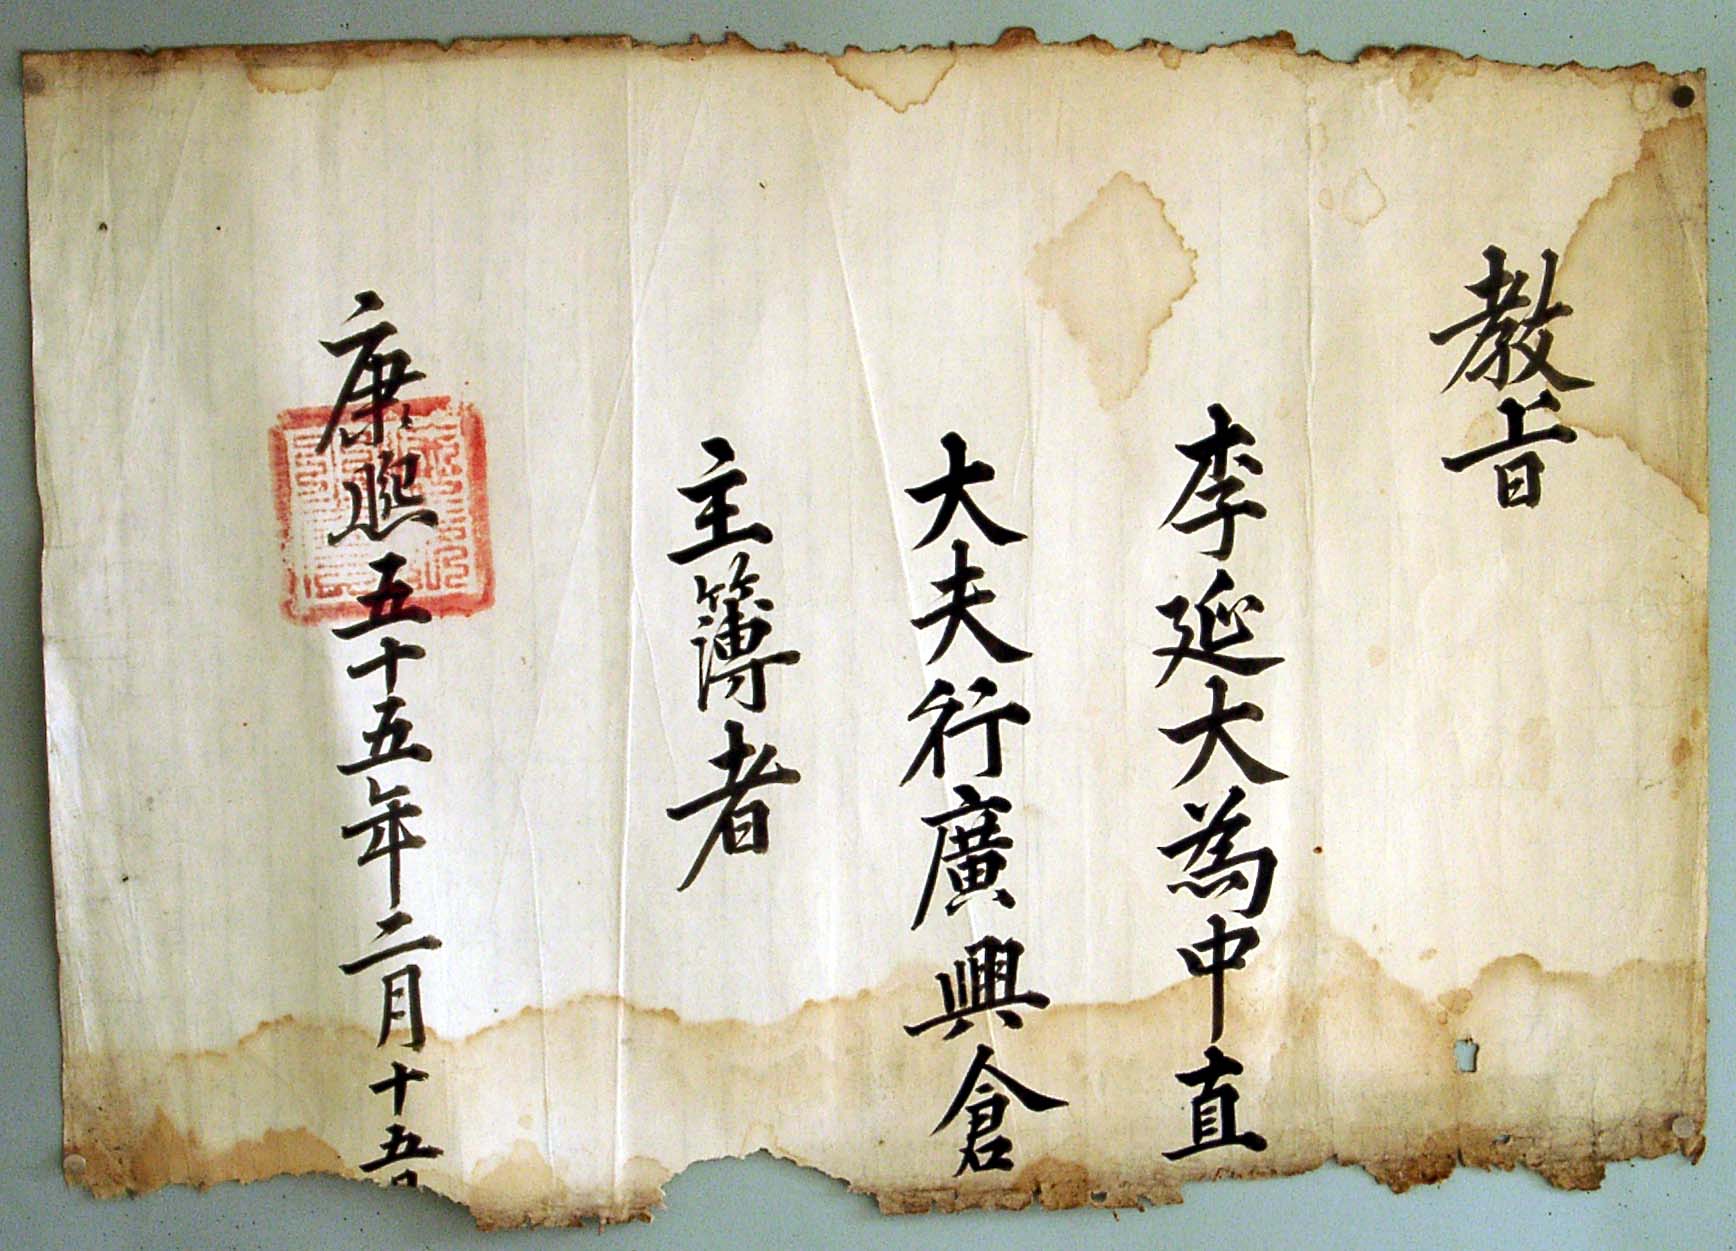 教旨
李延大為中直
大夫行廣興倉
主簿者
康熙五十五年二月十五日